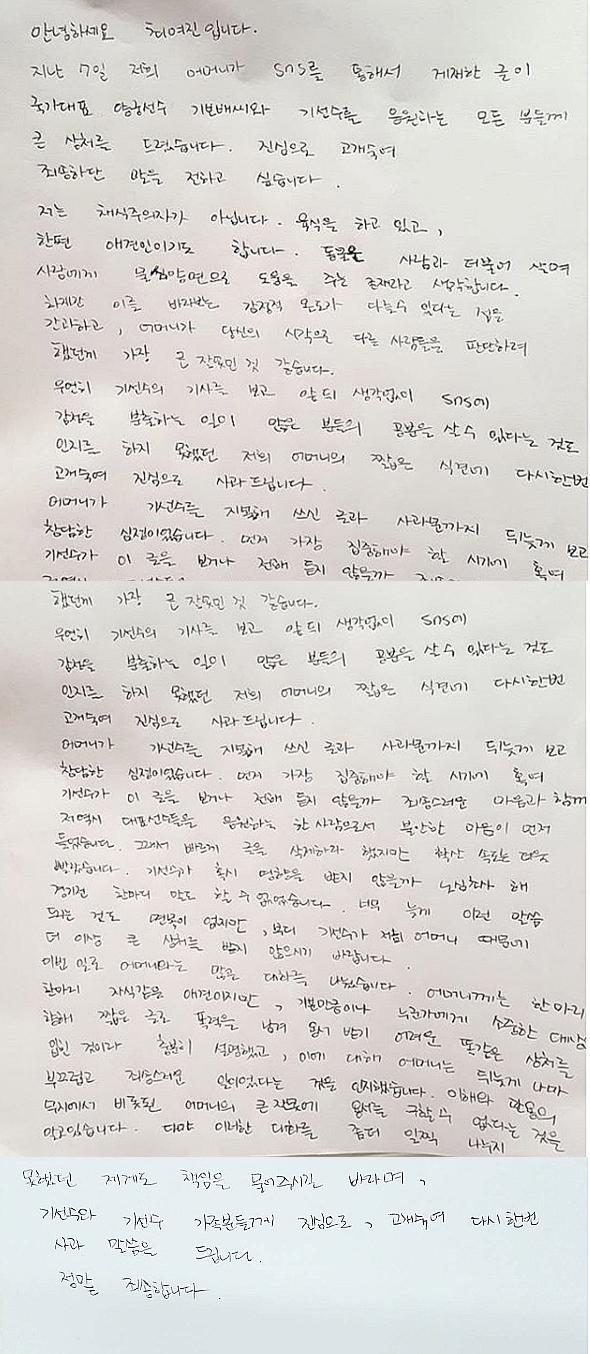 안녕하세요 최여진입니다.
지난 7일 저희 어머니가 SNS를 통해서 게재한 글이
국가대표 양궁선수 기보배씨와 기선수를 응원하는 모든 분들께
큰 상처를 드렸습니다. 진심으로 고개숙여
죄송하단 말을 전하고 싶습니다.
저는 채식주의자가 아닙니다. 육식을 하고 있고,
한편 애견인이기도 합니다. 동물은 사람과 더불어 살며
사람에게 물심양면으로 도움을 주는 존재라고 생각합니다.
하지만 이를 바라보는 감정적 온도가 다를수 있다는 점을
간과하고, 어머니가 당신의 시각으로 다른 사람들을 판단하려
했던게 가장 큰 잘못인 것 같습니다.
우연히 기선수의 기사를 보고 앞뒤 생각없이 SNS에
감정을 분출하는 일이 많은 분들의 공분을 살 수 있다는 것도
인지를 하지 못했던 저희 어머니의 짧은 식견에 다시한번
고개숙여 진심으로 사과드립니다.
어머니가 기선수를 지목해 쓰신 글과 사과문까지 뒤늦게 보고
참담한 심정이었습니다. 먼저 가장 집중해야 할 시기에 혹여
기선수가 이 글을 보거나 전해 듣지 않을까
했던게 가장 큰 잘못인 것 같습니다.
우연히 기선수의 기사를 보고 앞뒤 생각없이 SNS에
감정을 분출하는 일이 많은 분들의 공분을 살 수 있다는 것도
인지를 하지 못했던 저희 어머니의 짧은 식견에 다시한번
고개숙여 진심으로 사과드립니다.
어머니가 기선수를 지목해 쓰신 글과 사과문까지 뒤늦게 보고
참담한 심정이었습니다. 먼저 가장 집중해야 할 시기에 혹여
기선수가 이 글을 보거나 전해 듣지 않을까 죄송스러운 마음과 함께
저 역시 대표선수들을 응원하는 한 사람으로서 불안한 마음이 먼저
들었습니다. 그래서 바르게 글을 삭제하라 했지만 확산 속도는 더욱
빨랐습니다. 기선수가 혹시 영향을 받지 않을까 노심초사 해
경기전 한마디 말도 할 수 없었습니다. 너무 늦게 이런 말씀
드리는 것도 면목이 없지만, 부디 기선수가 저희 어머니 때문에
더 이상 큰 상처를 받지 않으시기 바랍니다.
이번 일로 어머니와는 많은 대화를 나눴습니다. 어머니께는 한마리
한마리 자식같은 애견이지만, 기본만큼이나 누군가에게 소중한 대상
향해 짧은 글로 폭력을 남겨 용서 받기 어려운 똑같은 상처를
입힌 것이라 충분히 설명했고, 이에 대해 어머니는 뒤늦게 나마
부끄럽고 죄송스러운 일이었다는 것을 인지했습니다. 이해와 관용의
무지에서 비롯된 어머니의 큰 잘못에 용서를 구할 수 없다는 것을
알고있습니다. 다만 이러한 대화를 좀더 일찍 나누지
못했던 제게도 책임을 물어주시길 바라며,
기선수와 기선수 가족분들께 진심으로, 고개숙여 다시한번
사과 말씀을 드립니다.
정말 죄송합니다.